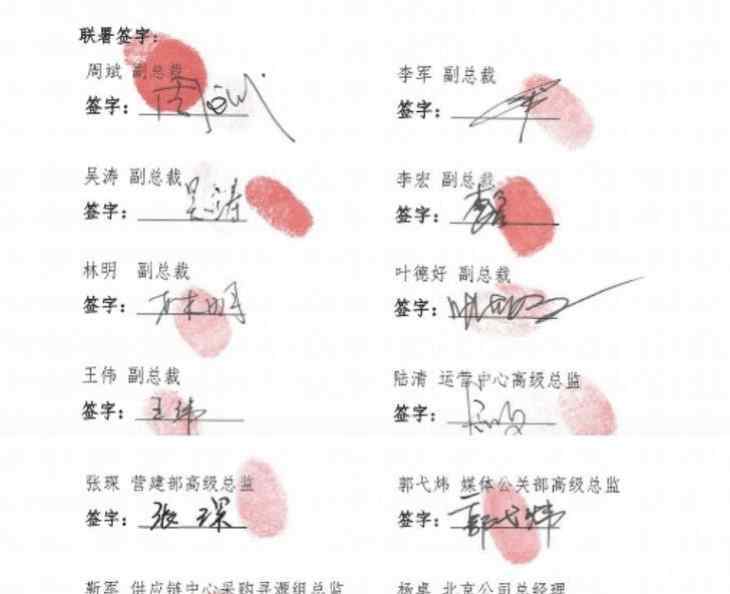 联署签字：
周斌 副总裁 李军 副总裁
签字： 周斌 签字：
吴涛 副总裁 李宏 副总裁
签字： 吴涛 签字：
林明 副总裁 叶德好 副总裁
签字： 林明 签字：
王伟 副总裁 陆清 运营中心高级总监
签字： 王玮 签字：
张琛 营建部高级总监 郭弋炜 媒体公关部高级总监
签字： 张琛 签字： 郭弋炜
靳军 供应链中心采购寻源组总监 杨卓 北京公司总经理